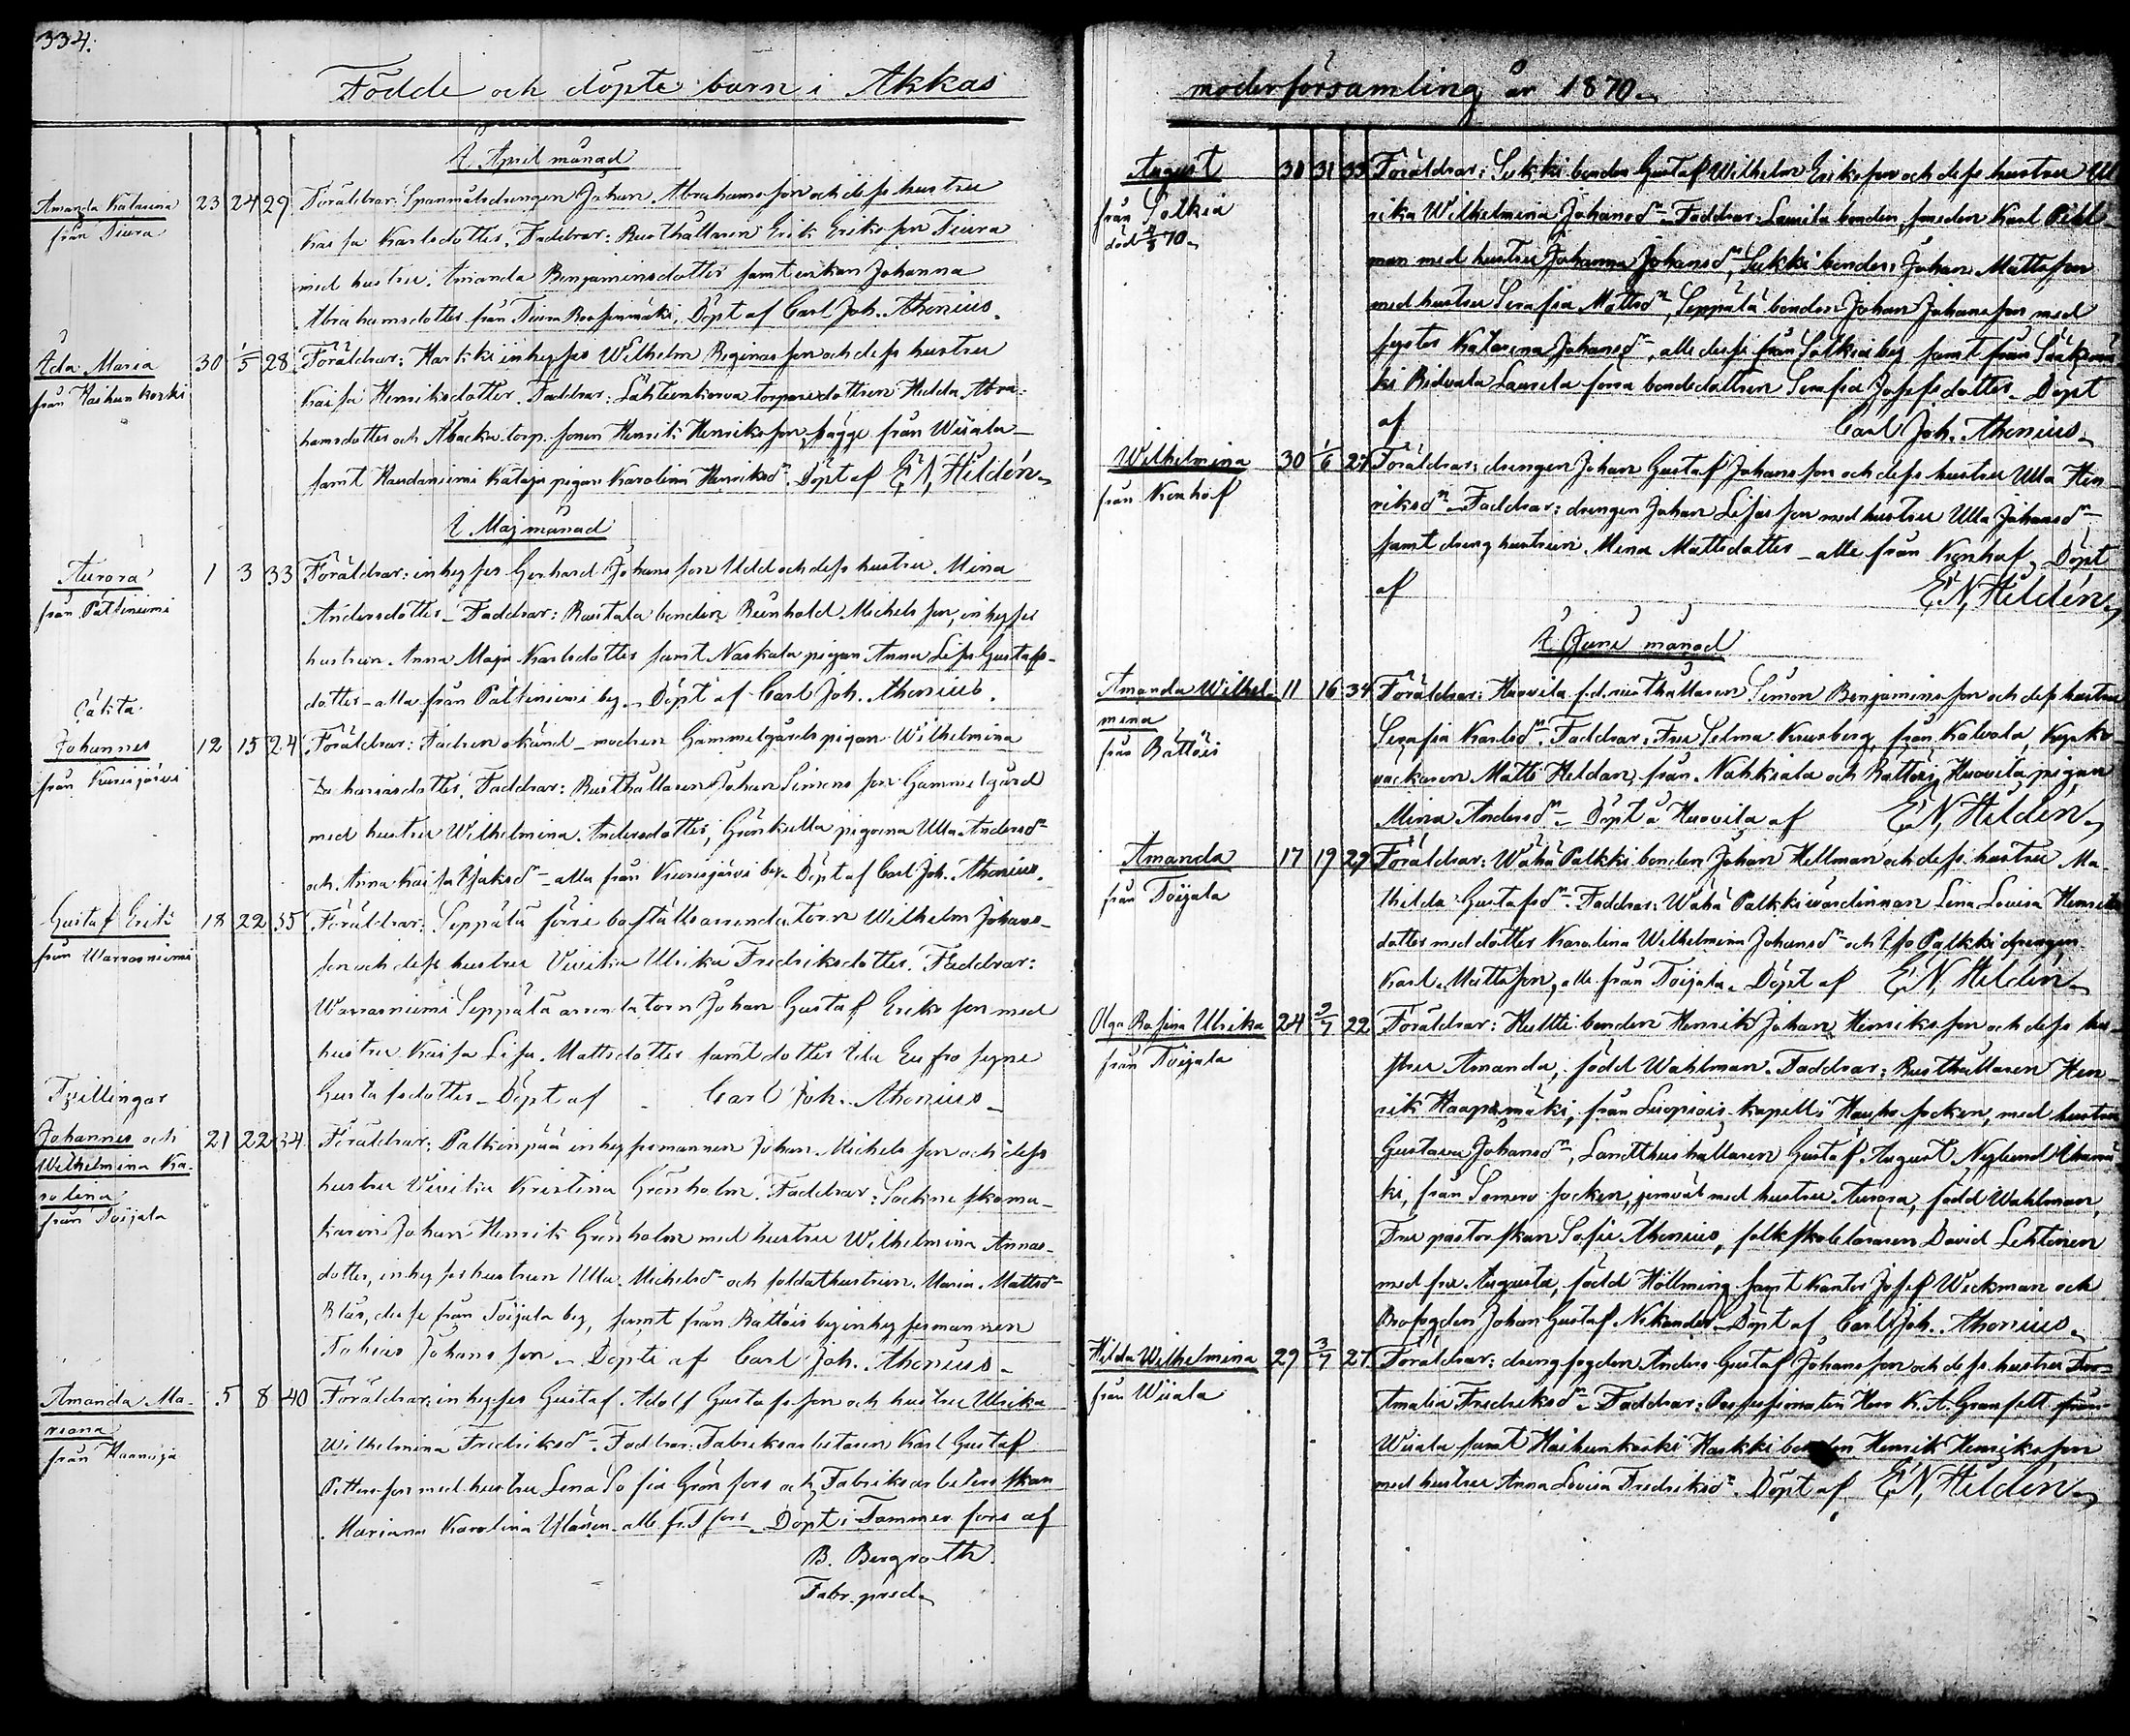 334.
Födde och döpte barn i Akkas
I April månad
Amanda Katarina 23 24 29 Föräldrar: Spanmålsdrengen Johan Abrahamsson och dess hustru
från Tiura
Kaisa Karlsdotter. Faddrar: Rusthållaren Erik Eriksson Tiura
med hustru Amanda Benjaminsdotter samt enkan Johanna
Abrahamsdotter från Tiura. Döpt af Carl Joh. Athenius.
Ada Maria 30 1/5 28 Föräldrar: Harkki inhyses Wilhelm Reginasson och dess hustru
från Haihunkoski
Kaisa Henriksdotter. Faddrar: Lähteenkorva torparedottren Hedda Abra-
hamsdotter och Åbacka torp. sonen Henrik Henriksson, bägge från Wiiala
samt Haudaniemi Kataja pigan Karolina Henriksdr. Döpt af E. N. Hildén
I Maj månad
Aurora 1 3 33 Föräldrar: inhyses Gerhard Johansson Udd och dess hustru Mina
från Pätiniemi
Andersdotter. Faddrar: Rustala bonden Reinhold Michelsson, inhyses
hustrun Anna Maja Karlsdotter samt Naskala pigan Anna Lisa Gustafs-
dotter – alla från Pätiniemi by. Döpt af Carl Joh. Athenius.
Oäkta
Johannes 12 15 24 Föräldrar: Fadren okänd – modren Gammelgårds pigan Wilhelmina
från Kurisjärvi
Zachariasdotter. Faddrar: Rusthållaren Johan Simonsson Gammelgård
med hustru Wilhelmina Andersdotter, Grönkulla pigorna Ulla Andersdr
och Anna Kaisa Isaksdr – alla från Kurisjärvi by. Döpt af Carl Joh. Athenius.
Gustaf Erik 18 22 35 Föräldrar: Seppälä förre boställsarrendatorn Wilhelm Johans-
från Warrasniemi
son och dess hustru Vivika Ulrika Fredriksdotter. Faddrar:
Warrasniemi Seppälä arrendatorn Johan Gustaf Eriksson med
hustru Kaisa Lisa Mattsdotter samt dotter Ida Eufrosyne
Gustafsdotter. Döpt af Carl Joh. Athenius
Tvillingar
Johannes och 21 22 34 Föräldrar: Palkinpää inhysesmannen Johan Michelsson och dess
Wilhelmina Ka-
rolina
från Toijala
hustru Vivika Kristina Grönholm. Faddrar: Sockneskoma-
karen Johan Henrik Grönholm med hustru Wilhelmina Annas-
dotter, inhyseshustrun Ulla Michelsdr och soldathustrun Maria Mattsdr
Blås, desse från Toijala by, samt från Rättöis by inhysesmannen
Tobias Johansson. Döpte af Carl Joh. Athenius
Amanda Ma- 5 8 40 Föräldrar: inhyses Gustaf Adolf Gustafsson och hustru Ulrika
riana
från Haanoja
Wilhelmina Fredriksdr. Faddrar: Fabriksarbetaren Karl Gustaf
Pettersson med hustru Lena Sofia Grönfors och Fabriksarbeterskan
Mariana Karolina – alla fr. T fors. Döpt i Tammerfors af
B. Bergroth
Fabr. pred.
moderförsamling år 1870
August 30 31 33 Föräldrar: Sukki bonden Gustaf Wilhelm Eriksson och dess hustru Ul-
från Sotkia
död 4/8 70
rika Wilhelmina Johansdr. Faddrar: Laurila bonden, smeden Karl Pihl-
man med hustru Johanna Johansdr, Sukki bonden Johan Mattsson
med hustru Serafia Mattsdr, Seppälä bonden Johan Johansson med
syster Katarina Johansdr, alla desse från Sotkia by samt från Sääksmä-
ki Ridvala Laurila förra bondedottren Serafia Josefsdotter. Döpt
af Carl Joh. Athenius
Wilhelmina 30 1/6 27 Föräldrar: drengen Johan Gustaf Johansson och dess hustru Ulla Hen-
från Konhof
riksdr. Faddrar: drengen Johan Lisasson med hustru Ulla Johansdr
samt dreng hustrun Mina Mattsdotter – alla från Konhof. Döpt
af E. N. Hildén
I Juni månad
Amanda Wilhel- 11 16 34 Föräldrar: Huovila f.d. rusthållaren Simon Benjaminsson och dess hustru
mina
från Rättöis
Serafia Karlsdr. Faddrar: Fru Selma Krusberg från Kalvola, Kyrko-
väktaren Matts Heldan från Nahkiala och Rättöis Huovila pigan
Mina Andersdr. Döpt å Huovila af E. N. Hildén
Amanda 17 19 29 Föräldrar: Wähä Palkki bonden Johan Hellman och dess hustru Ma-
från Toijala
thilda Gustafsdr. Faddrar: Wähä Palkki värdinnan Lina Lovisa Henriks-
dotter med dotter Karolina Wilhelmina Johansdr och Iso Palkki drengen
Karl Mattsson, alla från Toijala. Döpt af E. N. Hildén
Olga Rosina Ulrika 24 2/7 22 Föräldrar: Hultti bonden Henrik Johan Henriksson och dess hu-
från Toijala
stru Amanda, född Wahlman. Faddrar: Rusthållaren Hen-
rik Haapamäki, från Luopiois kapell i Hauho socken, med hustru
Gustava Johansdr, Landthushållaren Gustaf August Nylund
ki, från Somero socken, jemväl med hustru Aurora, född Wahlman,
Fru pastorskan Sofie Athenius, folkskoleläraren David Lehtinen
med fru Augusta, född Höllming samt kantor Josef Weckman och
Brofogden Johan Gustaf Nikander. Döpt af Carl Joh. Athenius
Hilda Wilhelmina 29 3/7 27 Föräldrar: drengfogden Anders Gustaf Johansson och dess hustru
från Wiiala
Amalia Fredriksdr. Faddrar: Possessionaten Herr K. A. Granfelt från
Wiiala samt Haihunkoski Harkki bonden Henrik Henriksson
med hustru Anna Lovisa Fredriksdr. Döpt af E. N. Hildén